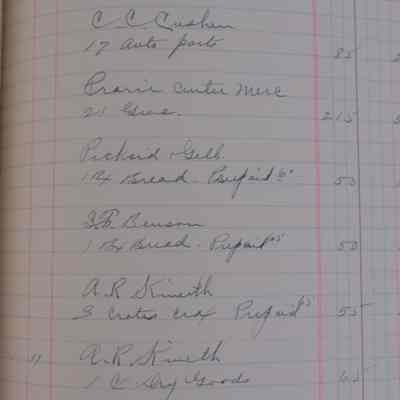 C C Cushen
17 Auto parts 85
Prairie Center Merc
21 Groc. 215
Pickard & Gelb.
1 Bx Bread - Prepaid 50
Benson
1 Bx Bread - Prepaid 50
A. R
3 Crates Prepaid 55
" A. R.
1 C Dry Goods 65